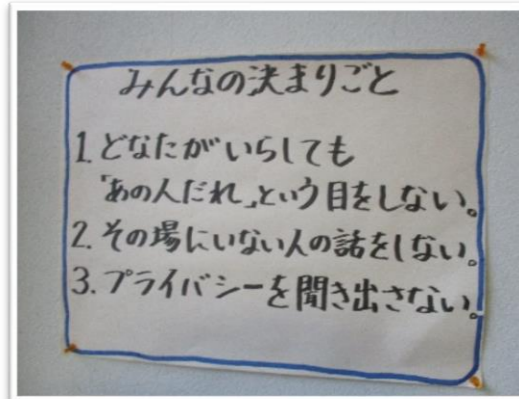 みんなの決まりごと
1.どなたがいらしても
「あの人だれ」という目をしない。
2.その場にいない人の話をしない。
3.プライバシーを聞き出さない。